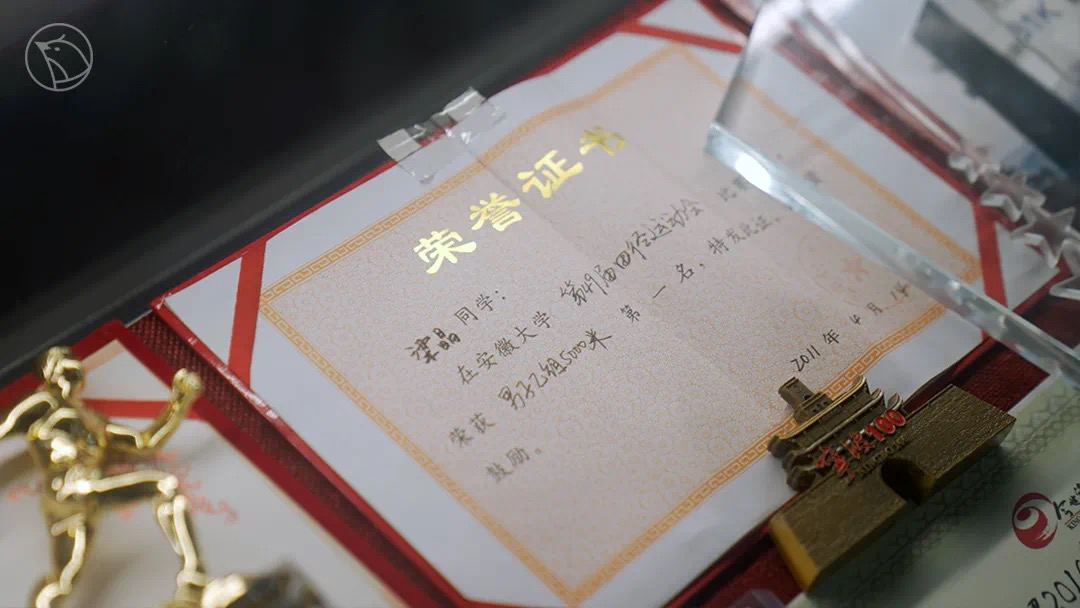 荣誉证书
梁晶 同学:
在安徽大学 第49届田径运动会 比赛
荣获 男子乙组5000米 第 一 名,特发此证,
鼓励。
2011 年 4 月
100